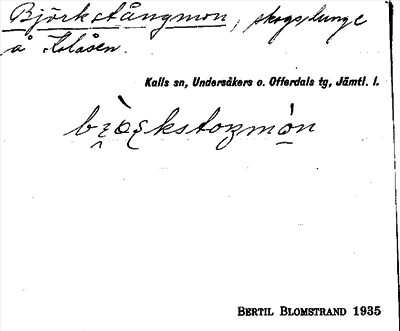 Björkstångmon, skogslunge
å Kolåsen.
Kalls sn, Undersåkers o. Offerdals tg, Jämtl. l.
BERTIL BLOMSTRAND 1935